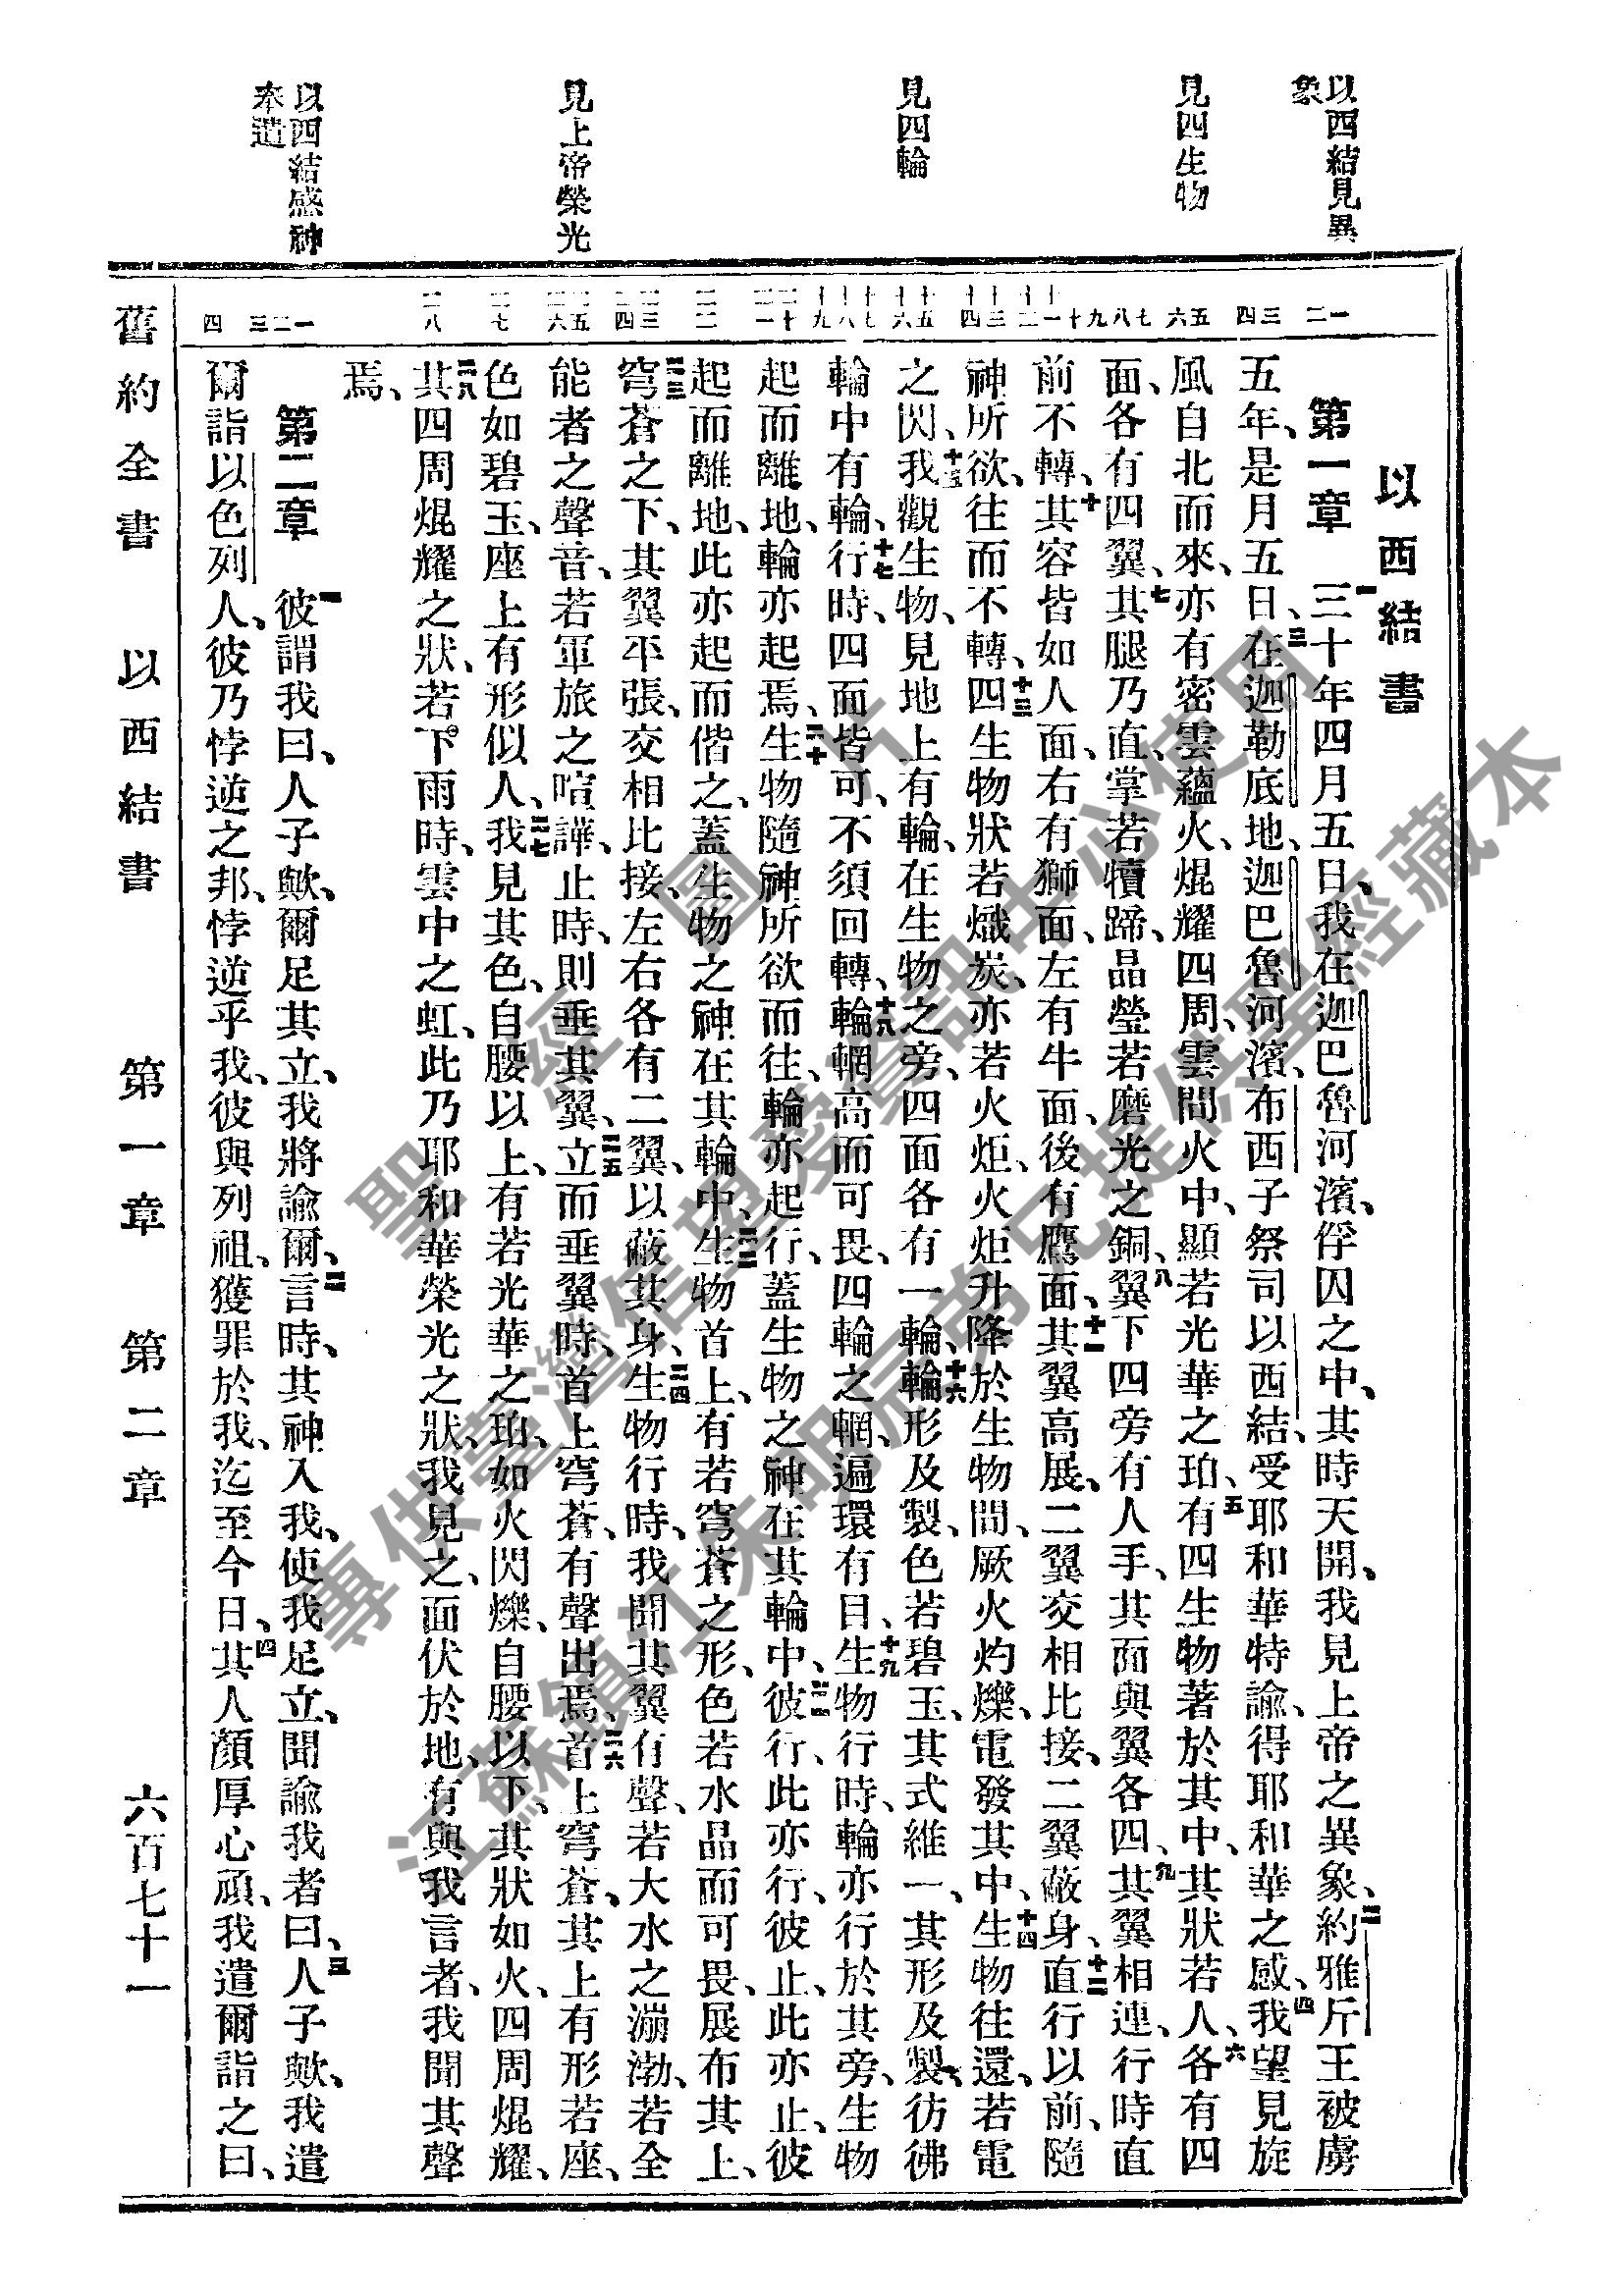 以西結見異
象
見四生物
見四輪
見上帝榮光
以西結感神
奉遣
以西結書
第一章 一三十年四月五日、我在迦巴魯河濱、俘囚之中、其時天開、我見上帝之異象、二約雅斤王被虜
五年、是月五日、三在迦勒底地、迦巴魯河濱、布西子祭司以西結、受耶和華特諭、得耶和華之感、四我望見旋
風自北而來、亦有密雲蘊火、焜耀四周、雲間火中、顯若光華之珀、五有四生物著於其中、其狀若人、六各有四
面、各有四翼、七其腿乃直、掌若犢蹄、品瑩若磨光之銅、八翼下四旁有人手、其面與翼各四、九其翼相連、行時直
前不轉、十其容皆如人面、右有獅面、左有牛面、後有鷹面、十一其翼高展、二翼交相比接、二翼蔽身、十二直行以前、隨
神所欲、往而不轉、十三四生物狀若熾炭、亦若火炬、火炬升降於生物間、厥火灼爍、電發其中、十四生物往還、若電
之閃、十五我觀生物、見地上有輪、在生物之旁、四面各有一輪、十六輪形及製、色若碧玉、其式維一、其形及製、彷彿
輪中有輪、十七行時、四面皆可、不須回轉、十八輪輞高而可畏、四輪之輞、遍環有目、十九生物行時、輪亦行於其旁、生物
起而離地、輪亦起焉、二十生物隨神所欲而往、輪亦起行、蓋生物之神在其輪中、二一彼行、此亦行、彼止、此亦止、彼
起而離地、此亦起而偕之、蓋生物之神在其輪中、二二生物首上、有若穹蒼之形、色若水晶而可畏、展布其上、
二三穹蒼之下、其翼平張、交相比接、左右各有二翼、以蔽其身、二四生物行時、我聞其翼有聲、若大水之湍渤、若全
能者之聲音、若軍旅之喧譁、止時、則垂其翼、二五立而垂翼時、首上穹蒼、有聲出焉、二六首上穹蒼、其上有形若座、
色如碧玉、座上有形似人、二七我見其色、自腰以上、有若光華之珀、如火閃爍、自腰以下、其狀如火、四周焜耀、
二八其四周焜耀之狀、若下雨時、雲中之虹、此乃耶和華榮光之狀、我見之、面伏於地、有與我言者、我聞其聲
焉、
第二章 一彼謂我曰、人子歟、爾足其立、我將諭爾、二言時、其神入我、使我足立、聞諭我者曰、三人子歟、我遣
爾詣以色列人、彼乃悖逆之邦、悖逆乎我、彼與列祖、獲罪於我、迄至今日、四其人顏厚心頑、我遣爾詣之曰、
舊約全書 以西結書 第一章 第二章 六百七十一
聖經圖片
專供臺灣信望愛資訊中心使用
江蘇鎮江朱明辰弟兄提供聖經藏本